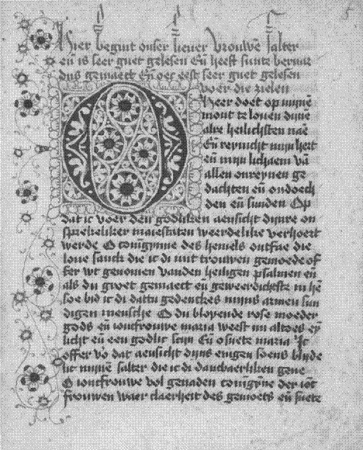 Hier begint onser liever vrouwen salter
eñ is seer guet gelesen Eñ heeft sunte bernar
dus gemaect Eñ oec eest seer guet gelesen
voer die zielen
Heer doet op mijnē
mont te louen dijne
alre heilichstē naē
Eñ reynicht mijn hert
eñ mijn lichaem vā
allen onreynen ge
dachten eñ ondoech
den eñ sunden Op
dat ic voer den godliken aensicht dijnre on
sprekeliker maiestaten weerdelike verhoert
werde O coninghinne des hemels ontfae die
loue sanck die ic di mit trouwen gemoede of
fer wt genomen vanden heiligen psalmen eñ
als du groet gemaect eñ geweerdichste in hē
soe bid ic di datu gedenckes mijns armen sun
digen mensche O du bloyende rose moeder
gods eñ ioncfrouwe maria weest mi altoes ey
licht eñ een godlic scijn Eñ o suete maria Ic
offer vō dat aensicht dijns enigen soens blijde
lic mijnē salter die ic di danckaerliken gene
O ioncfrouwe vol genaden coningīne der iōc
frouwen waer claerheit des gemoets eñ suete